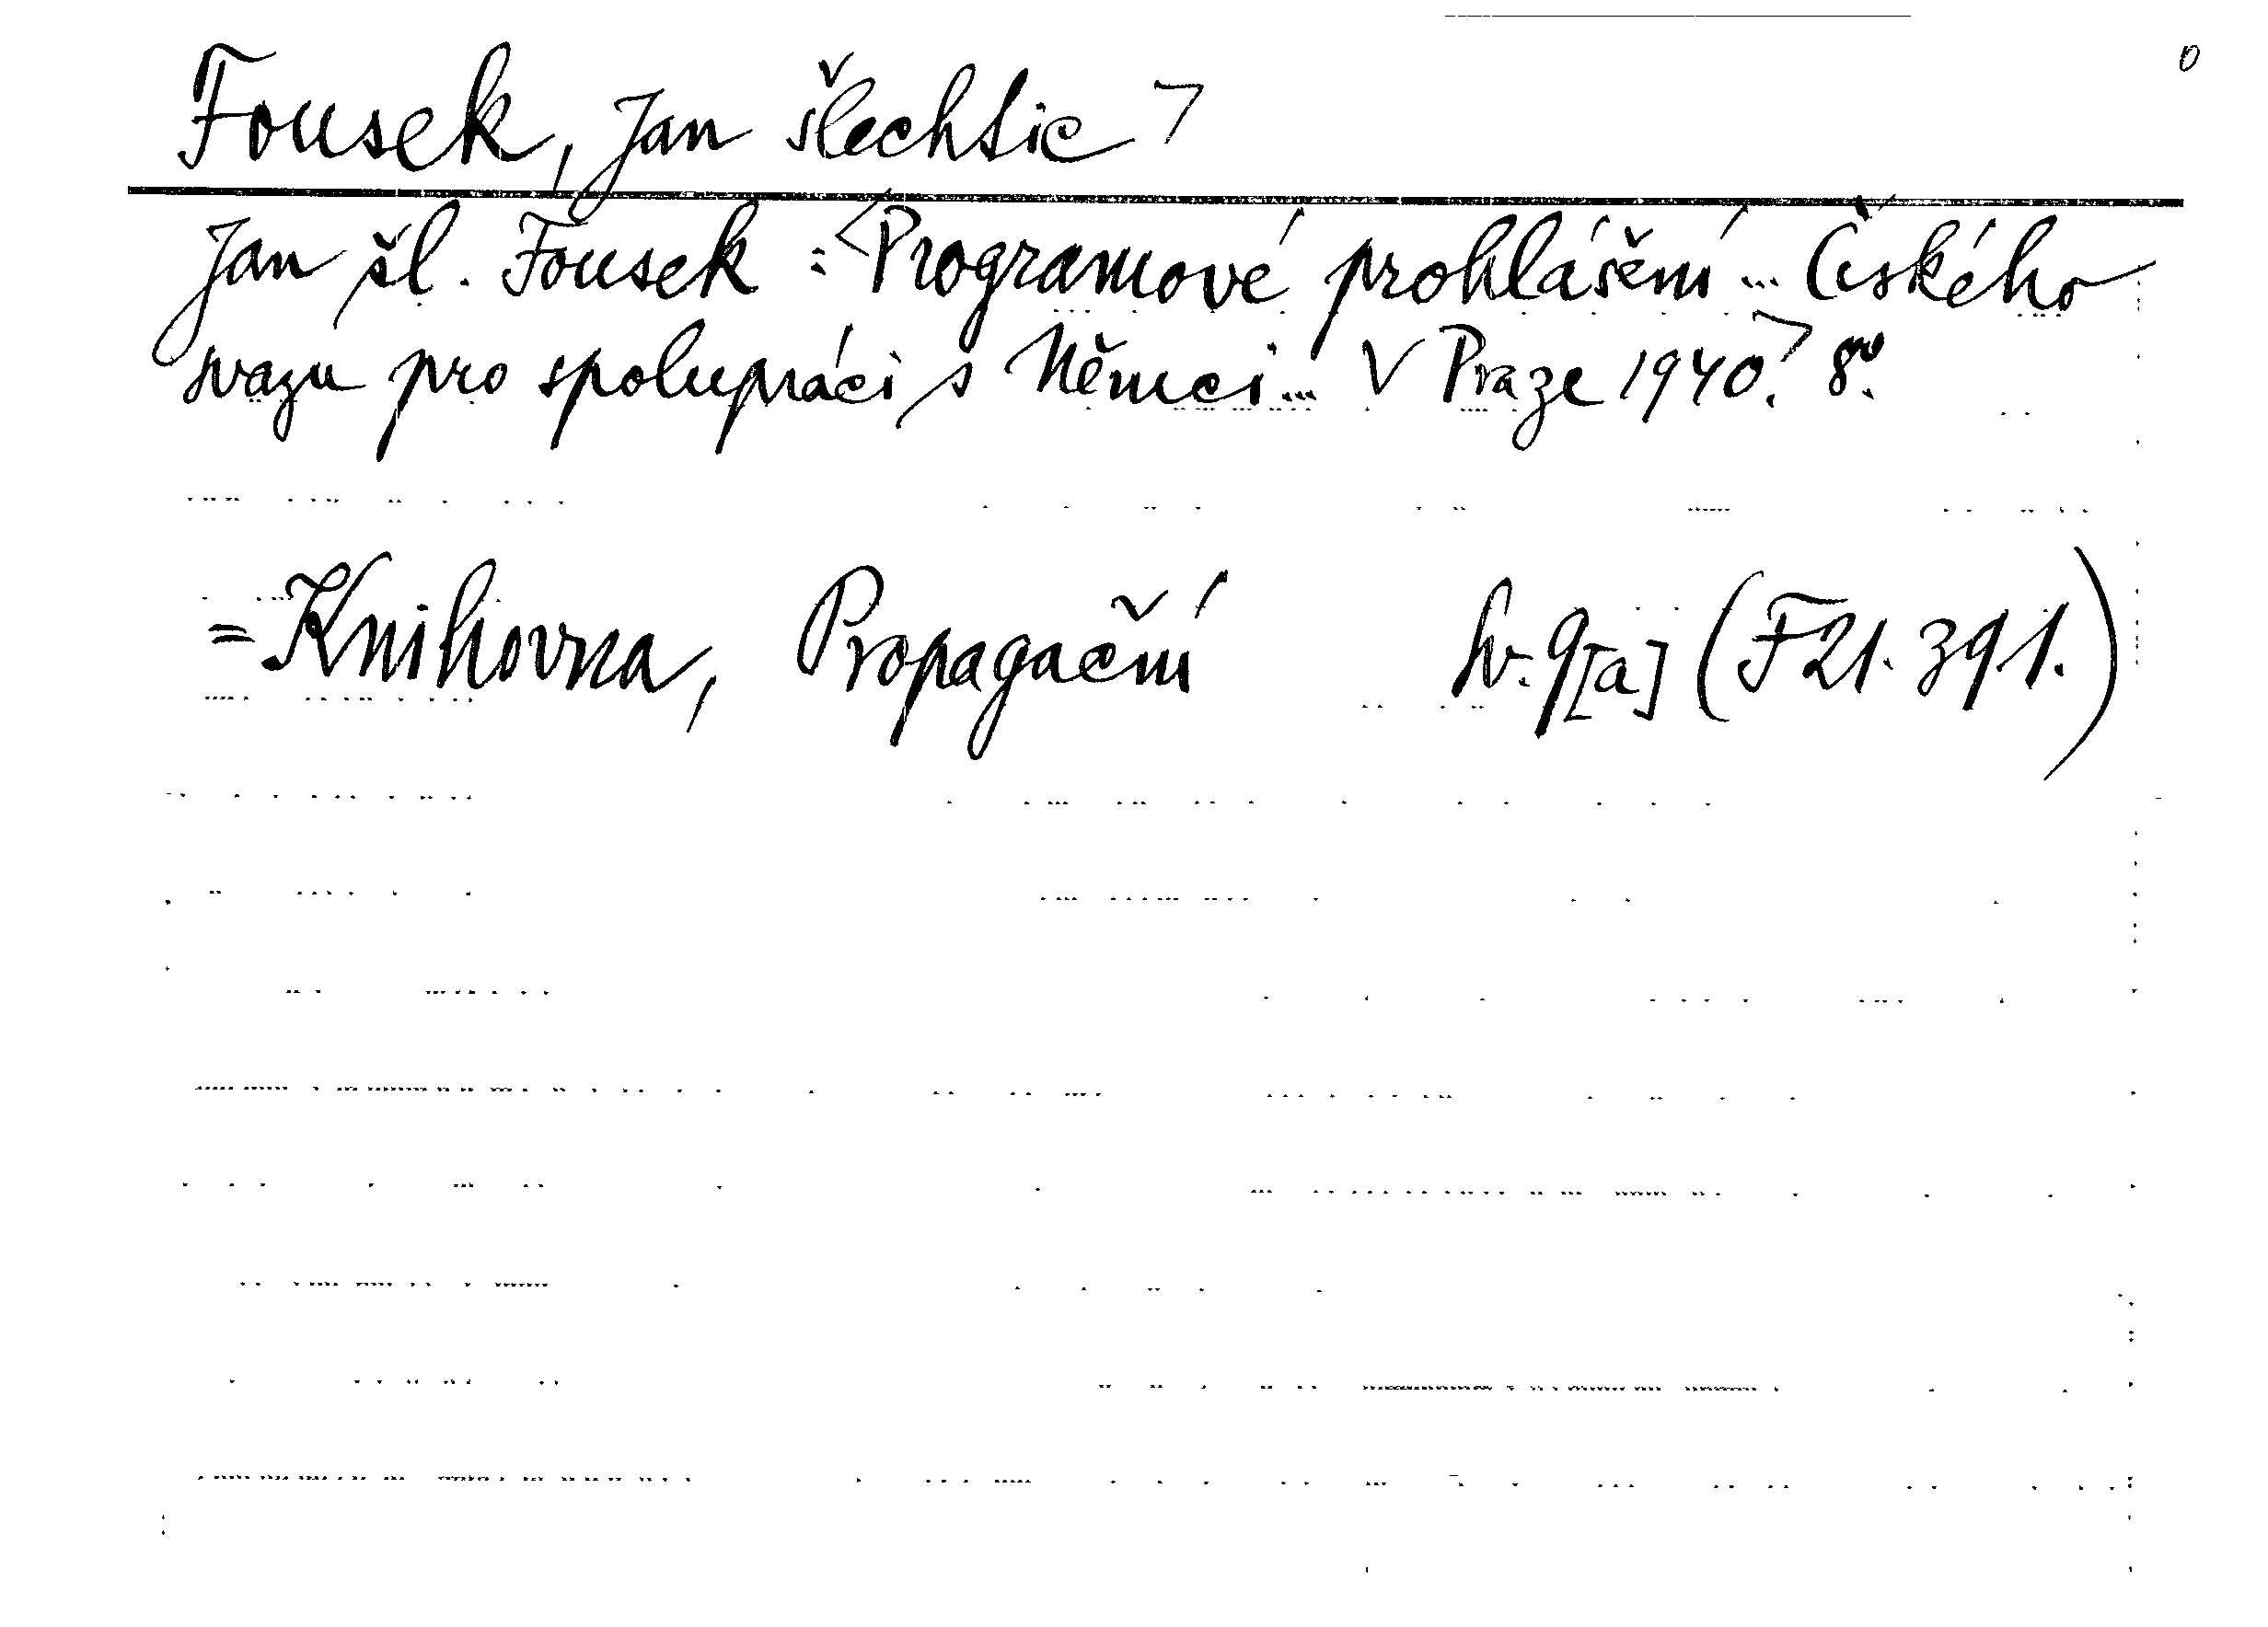 Fousek, Jan šlechtic ¬
Jan šl. Fousek : <Programové prohlášení ... Českého
svazu pro spolupráci s Němci ... V Praze 1940.> 8°.
= Knihovna, Propagační sv. 9[a] (F 21.391.)